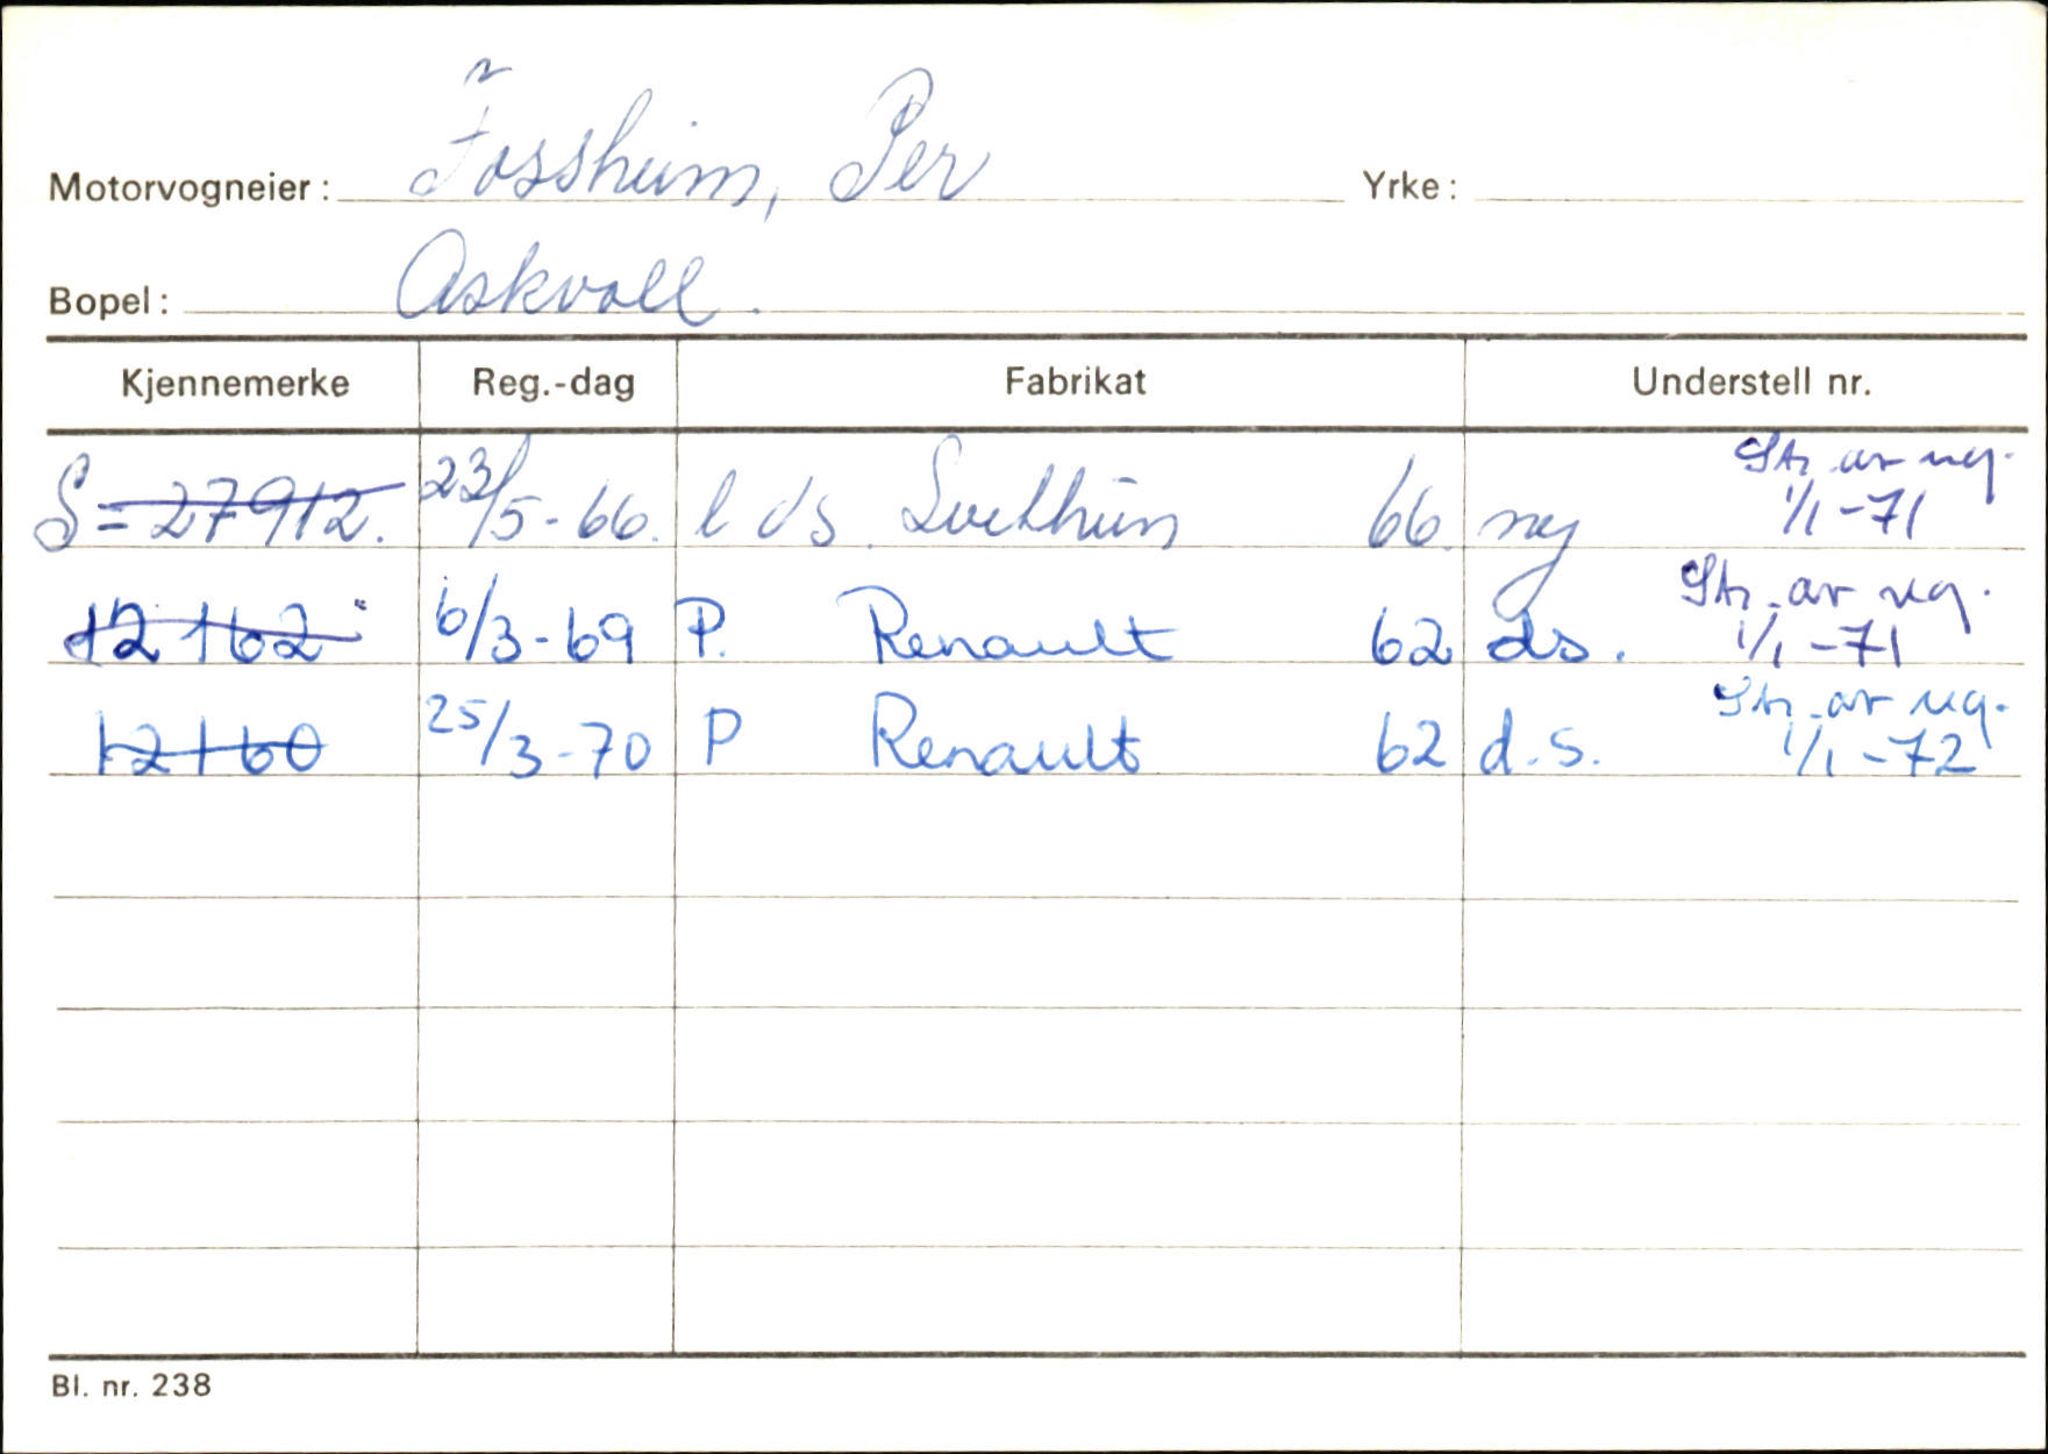 Motorvogneier: Fossheim, Per Yrke:
Bopel: Askvoll.
Kjennemerke Reg.-dag Fabrikat Understell nr.
Str. av reg.
S-27912. 23/5-66. l ds. Svithun 66. ny 1/1-71
Str. av reg.
12162 6/3-69 P. Renault 62 ds. 1/1-71
Str. av reg.
12160 25/3-70 P Renault 62 d.s. 1/1-72
Bl. nr. 238